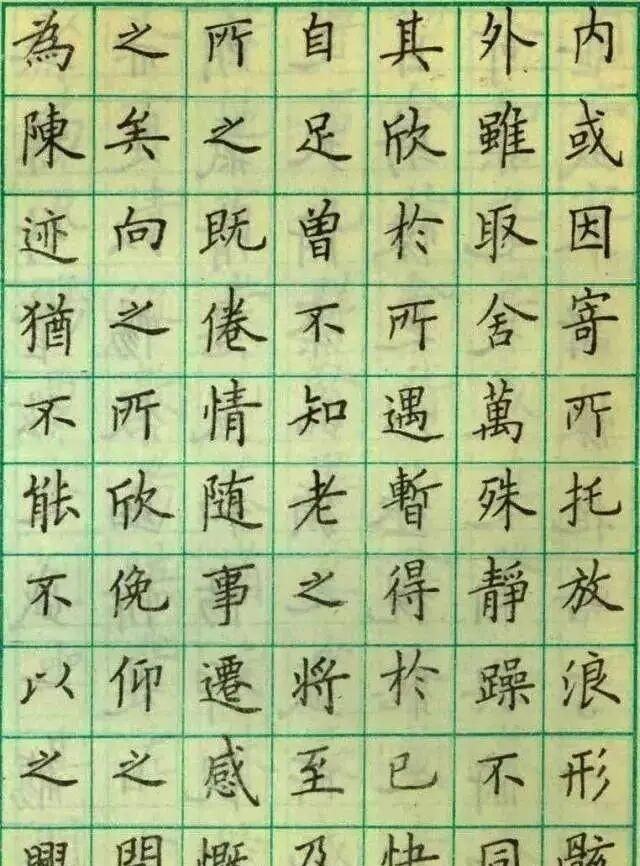 内或因寄所托放浪形骸
外雖取舍萬殊靜躁不同
其欣於所遇暫得於已快
自足曾不知老之將至及
所之既倦情随事遷感慨
之矣向之所欣俛仰之間
為陳迹猶不能不以之興